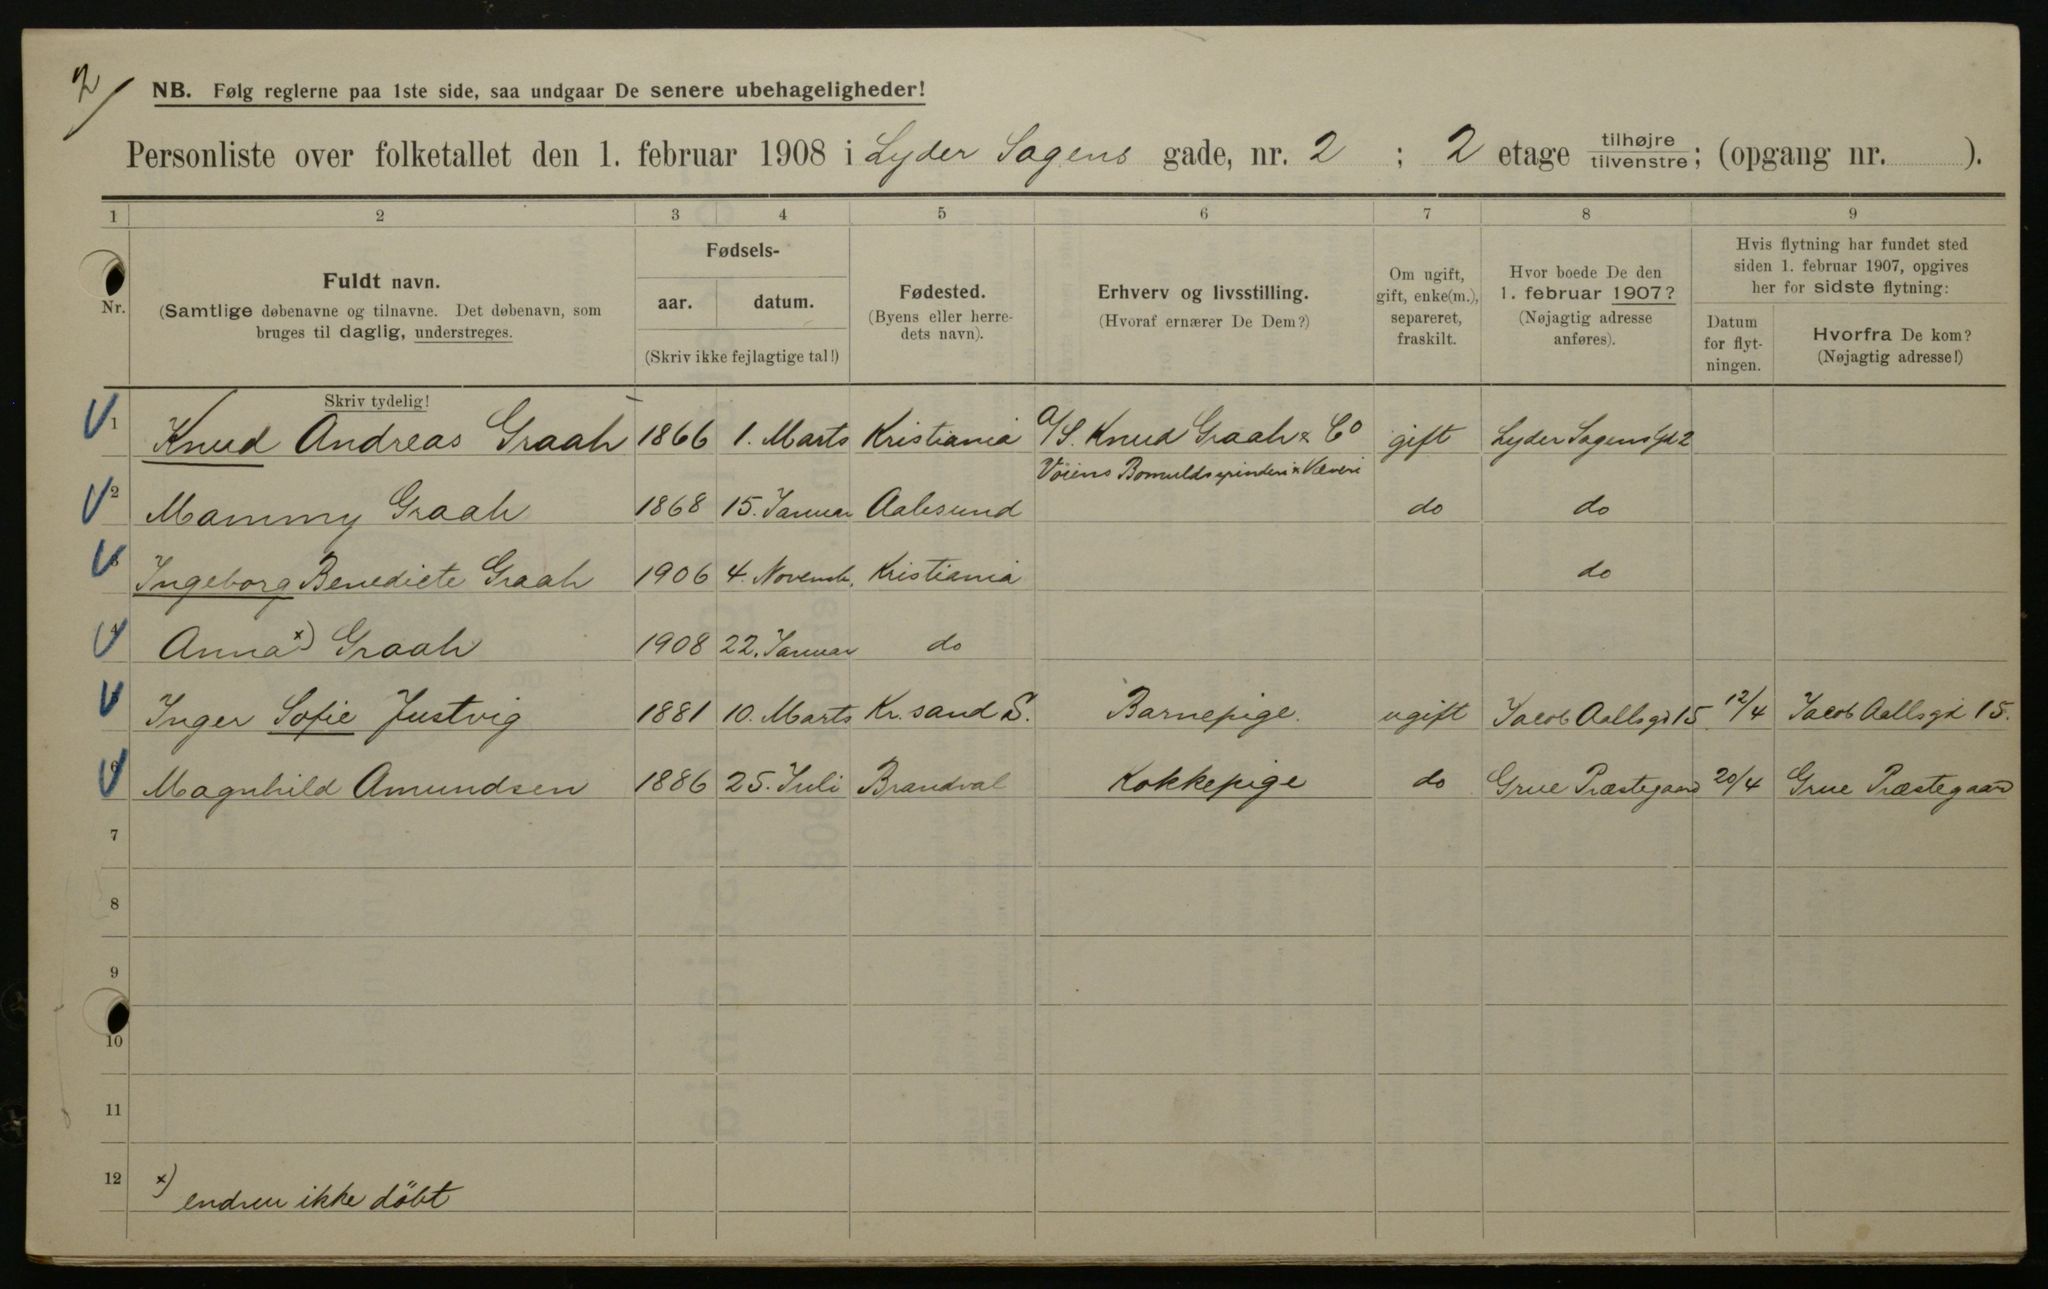 2/
NB. Følg reglerne paa 1ste side, saa undgaar De senere ubehageligheder!
Personliste over folketallet den 1. februar 1908 i Lyder Sagens gade, nr. 2 ; 2 etage tilhøjre/tilvenstre; (opgang nr. ).
1 2 3 4 5 6 7 8 9
Nr.
Fuldt navn.
(Samtlige døbenavne og tilnavne. Det døbenavn, som
bruges til daglig, understreges.
Skriv tydelig!
Fødsels-
aar. datum.
(Skriv ikke fejlagtige tal!)
Fødested.
(Byens eller herre-
dets navn).
Erhverv og livsstilling.
(Hvoraf ernærer De Dem?)
Om ugift,
gift, enke(m.),
separeret,
fraskilt.
Hvor boede De den
1. februar 1907?
(Nøjagtig adresse
anføres).
Hvis flytning har fundet sted
siden 1. februar 1907, opgives
her for sidste flytning:
Datum
for flyt-
ningen.
Hvorfra De kom?
(Nøjagtig adresse!)
1 Knud Andreas Graah 1866 1. Marts Kristiania a/S. Knud Graah & Co gift Lyder Sagens gd 2
Vöiens Bomuldsspinderi & Væveri
2 Mammy Graah 1868 15. Januar Aalesund do do
3 Ingeborg Benedicte Graah 1906 4. Novemb. Kristiania do
4 Anna x) Graah 1908 22. Januar do
5 Inger Sofie Justvig 1881 10. Marts Kr. sand S. Barnepige. ugift Jacob Aallsgd 15 12/4 Jacob Aallsgd 15.
6 Magnhild Amundsen 1886 25. Juli Brandval Kokkepige do Grue Præstegaard 20/4 Grue Præstegaard
7
8
9
10
11
12
x) endnu ikke döbt